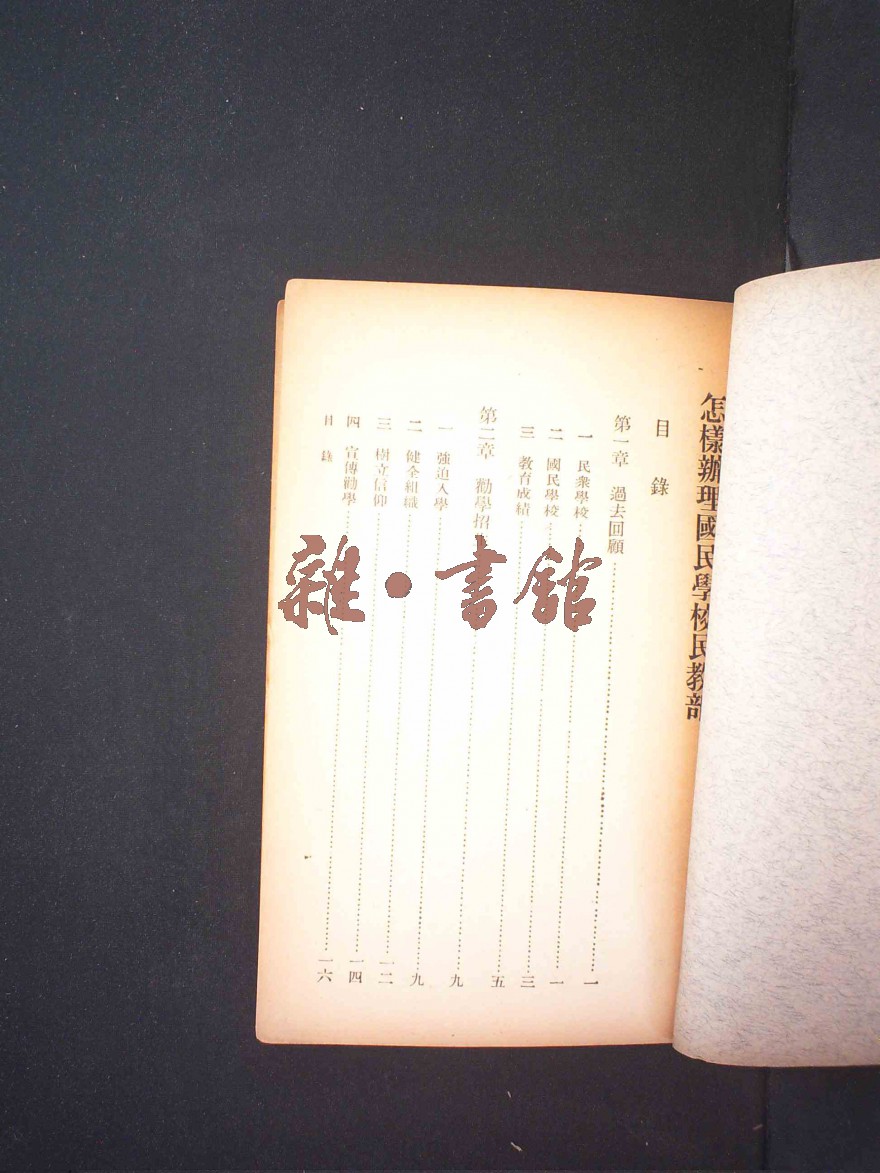 怎樣辦理國民學校民教部
目錄
第一章 過去回顧……一
一 民衆學校……一
二 國民學校……三
三 教育成績……五
第二章 勸學招……九
一 強迫入學……九
二 健全組織……一二
三 樹立信仰……一四
四 宣傳勸學……一六
目錄
雜•書館